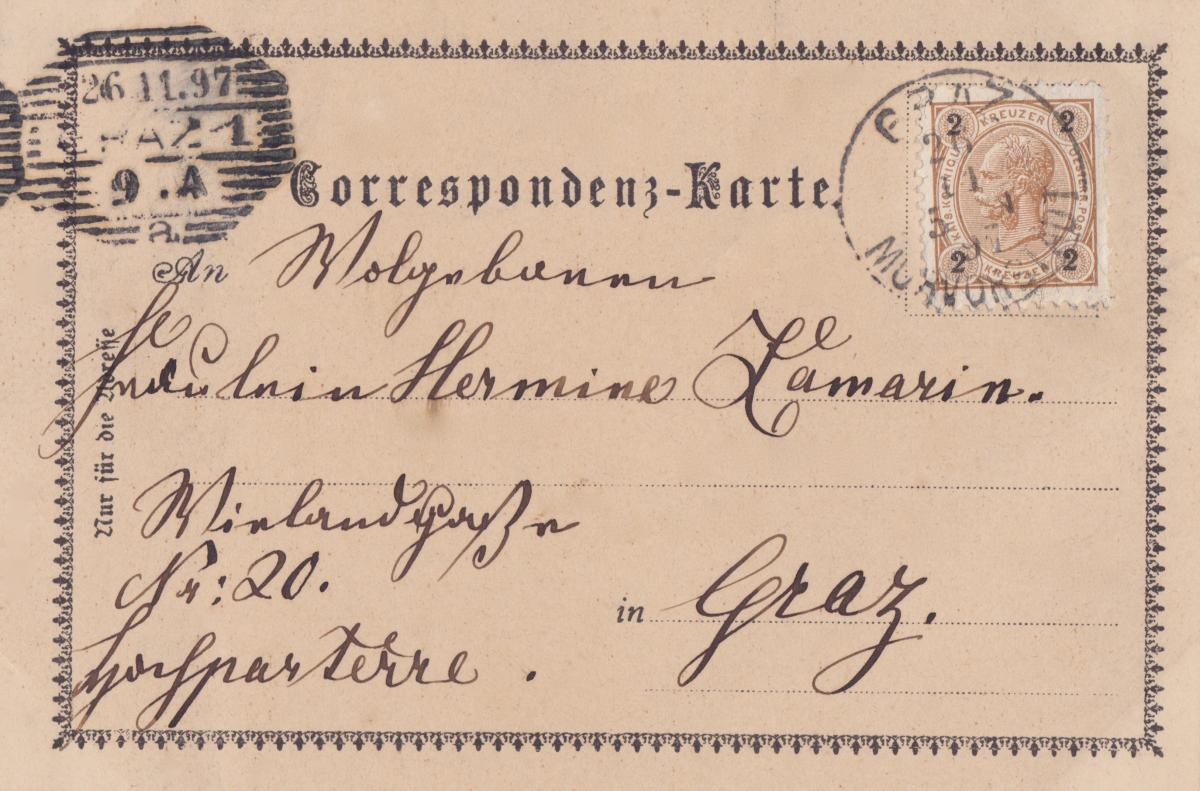 26.11.97
RAZ 1
9 . A
a
2 KREUZER 2
KAIS. KÖNIGL.
OESTERR. POST
2 KREUZER 2
GRAZ
MURVOR
Correspondenz-Karte.
An Wolgeboren
Fräulein Hermine Lamarin.
Wielandgaße
Nr: 20.
Hochparterre .
in Graz.
Nur für die Adresse